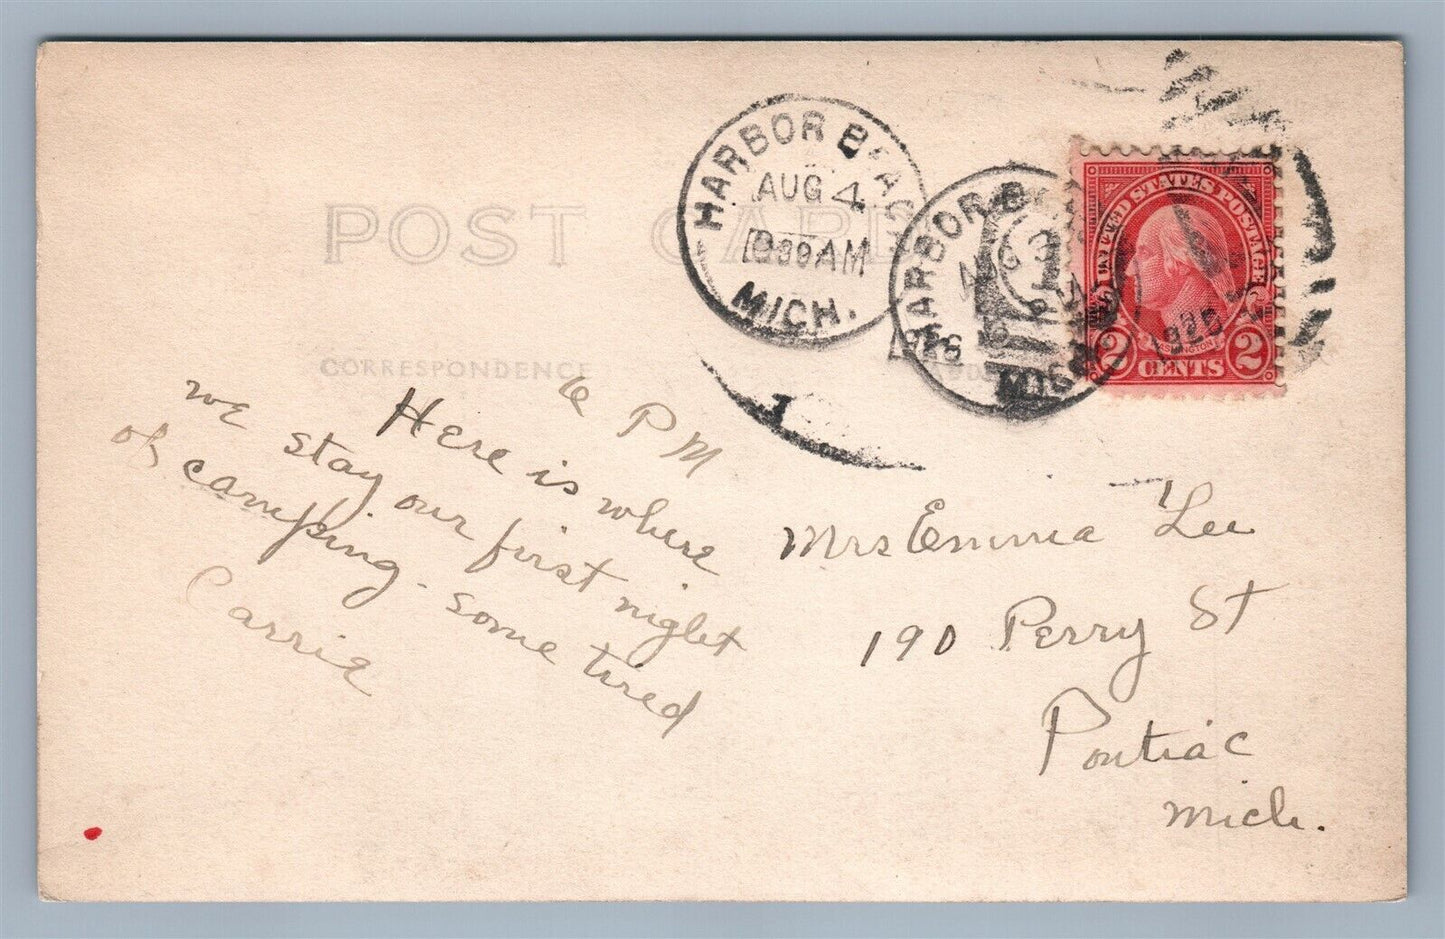 POST CARD
CORRESPONDENCE
HARBOR BEACH
AUG 4
AM
MICH.
HARBOR B
AUG 3
1925
UNITED STATES POSTAGE
WASHINGTON
2 CENTS 2
6 PM
Here is where
we stay our first night
of camping - some tired
Carrie
Mrs Emma Lee
190 Perry St
Pontiac
Mich.